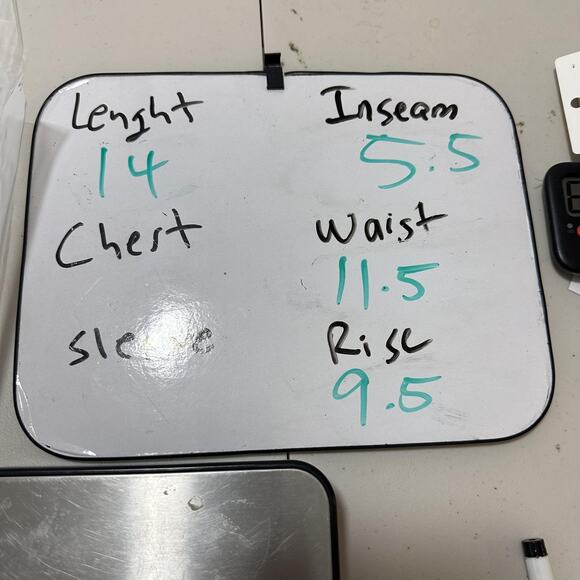 Lenght
14
Chest
Inseam
5.5
Waist
11.5
Rise
9.5